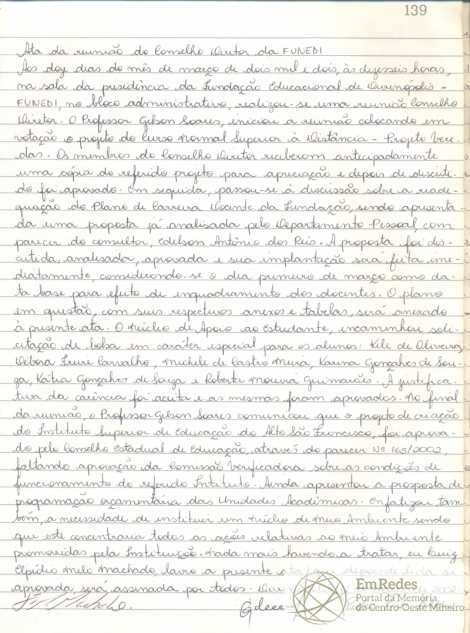 139
Ata da reunião do Conselho Diretor da FUNEDI
Aos doze dias do mês de março de dois mil e dois, às dezesseis horas,
na sala da presidência da Fundação Educacional de Divinópolis -
FUNEDI, no bloco administrativo, realizou-se uma reunião Conselho
Diretor. O Professor Gilson Soares, iniciou a reunião colocando em
votação o projeto do Curso Normal Superior à Distância - Projeto Vere-
das. Os membros do Conselho Diretor receberam antecipadamente
uma cópia do referido projeto para apreciação e depois de discuti-
do foi aprovado. Em seguida, passou-se à discussão sobre a reade-
quação do Plano de Carreira Docente da Fundação, sendo apresenta-
da uma proposta já analisada pelo Departamento Pessoal, com
parecer do consultor, Edilson Antônio dos Reis. A proposta foi dis-
cutida, analisada, aprovada e sua implantação será feita ime-
diatamente, considerando-se o dia primeiro de março como da-
ta base para efeito de enquadramento dos docentes. O plano
em questão, com seus respectivos anexos e tabelas, será anexado
à presente ata. O Núcleo de Apoio ao Estudante, encaminhou soli-
citação de bolsa em caráter especial para os alunos: Kele de Oliveira,
Débora Freire Carvalho, Michele de Castro Meira, Karina Gonçalves de Sou-
za, Kátia Gonçalves de Souza e Roberta Moura Guimarães. A justifica-
tiva da carência foi aceita e as mesmas foram aprovados. No final
da reunião, o Professor Gilson Soares comunicou que o projeto de criação
do Instituto Superior de Educação do Alto São Francisco, foi aprova-
do pelo Conselho Estadual de Educação, através do parecer Nº 165/2002,
faltando aprovação da Comissão Verificadora sobre as condições de
funcionamento do referido Instituto. Ainda apresentou a proposta de
programação orçamentária das Unidades Acadêmicas. Enfatizou tam-
bém, a necessidade de instituir um Núcleo de Meio Ambiente sendo
que este concentraria todas as ações relativas ao Meio Ambiente
promovidas pela Instituição. Nada mais havendo a tratar, eu
Elpídio Melo Machado, lavro a presente ata que depois de lida e
aprovada, será assinada por todos.
EmRedes
Portal da Memória
do Centro-Oeste Mineiro